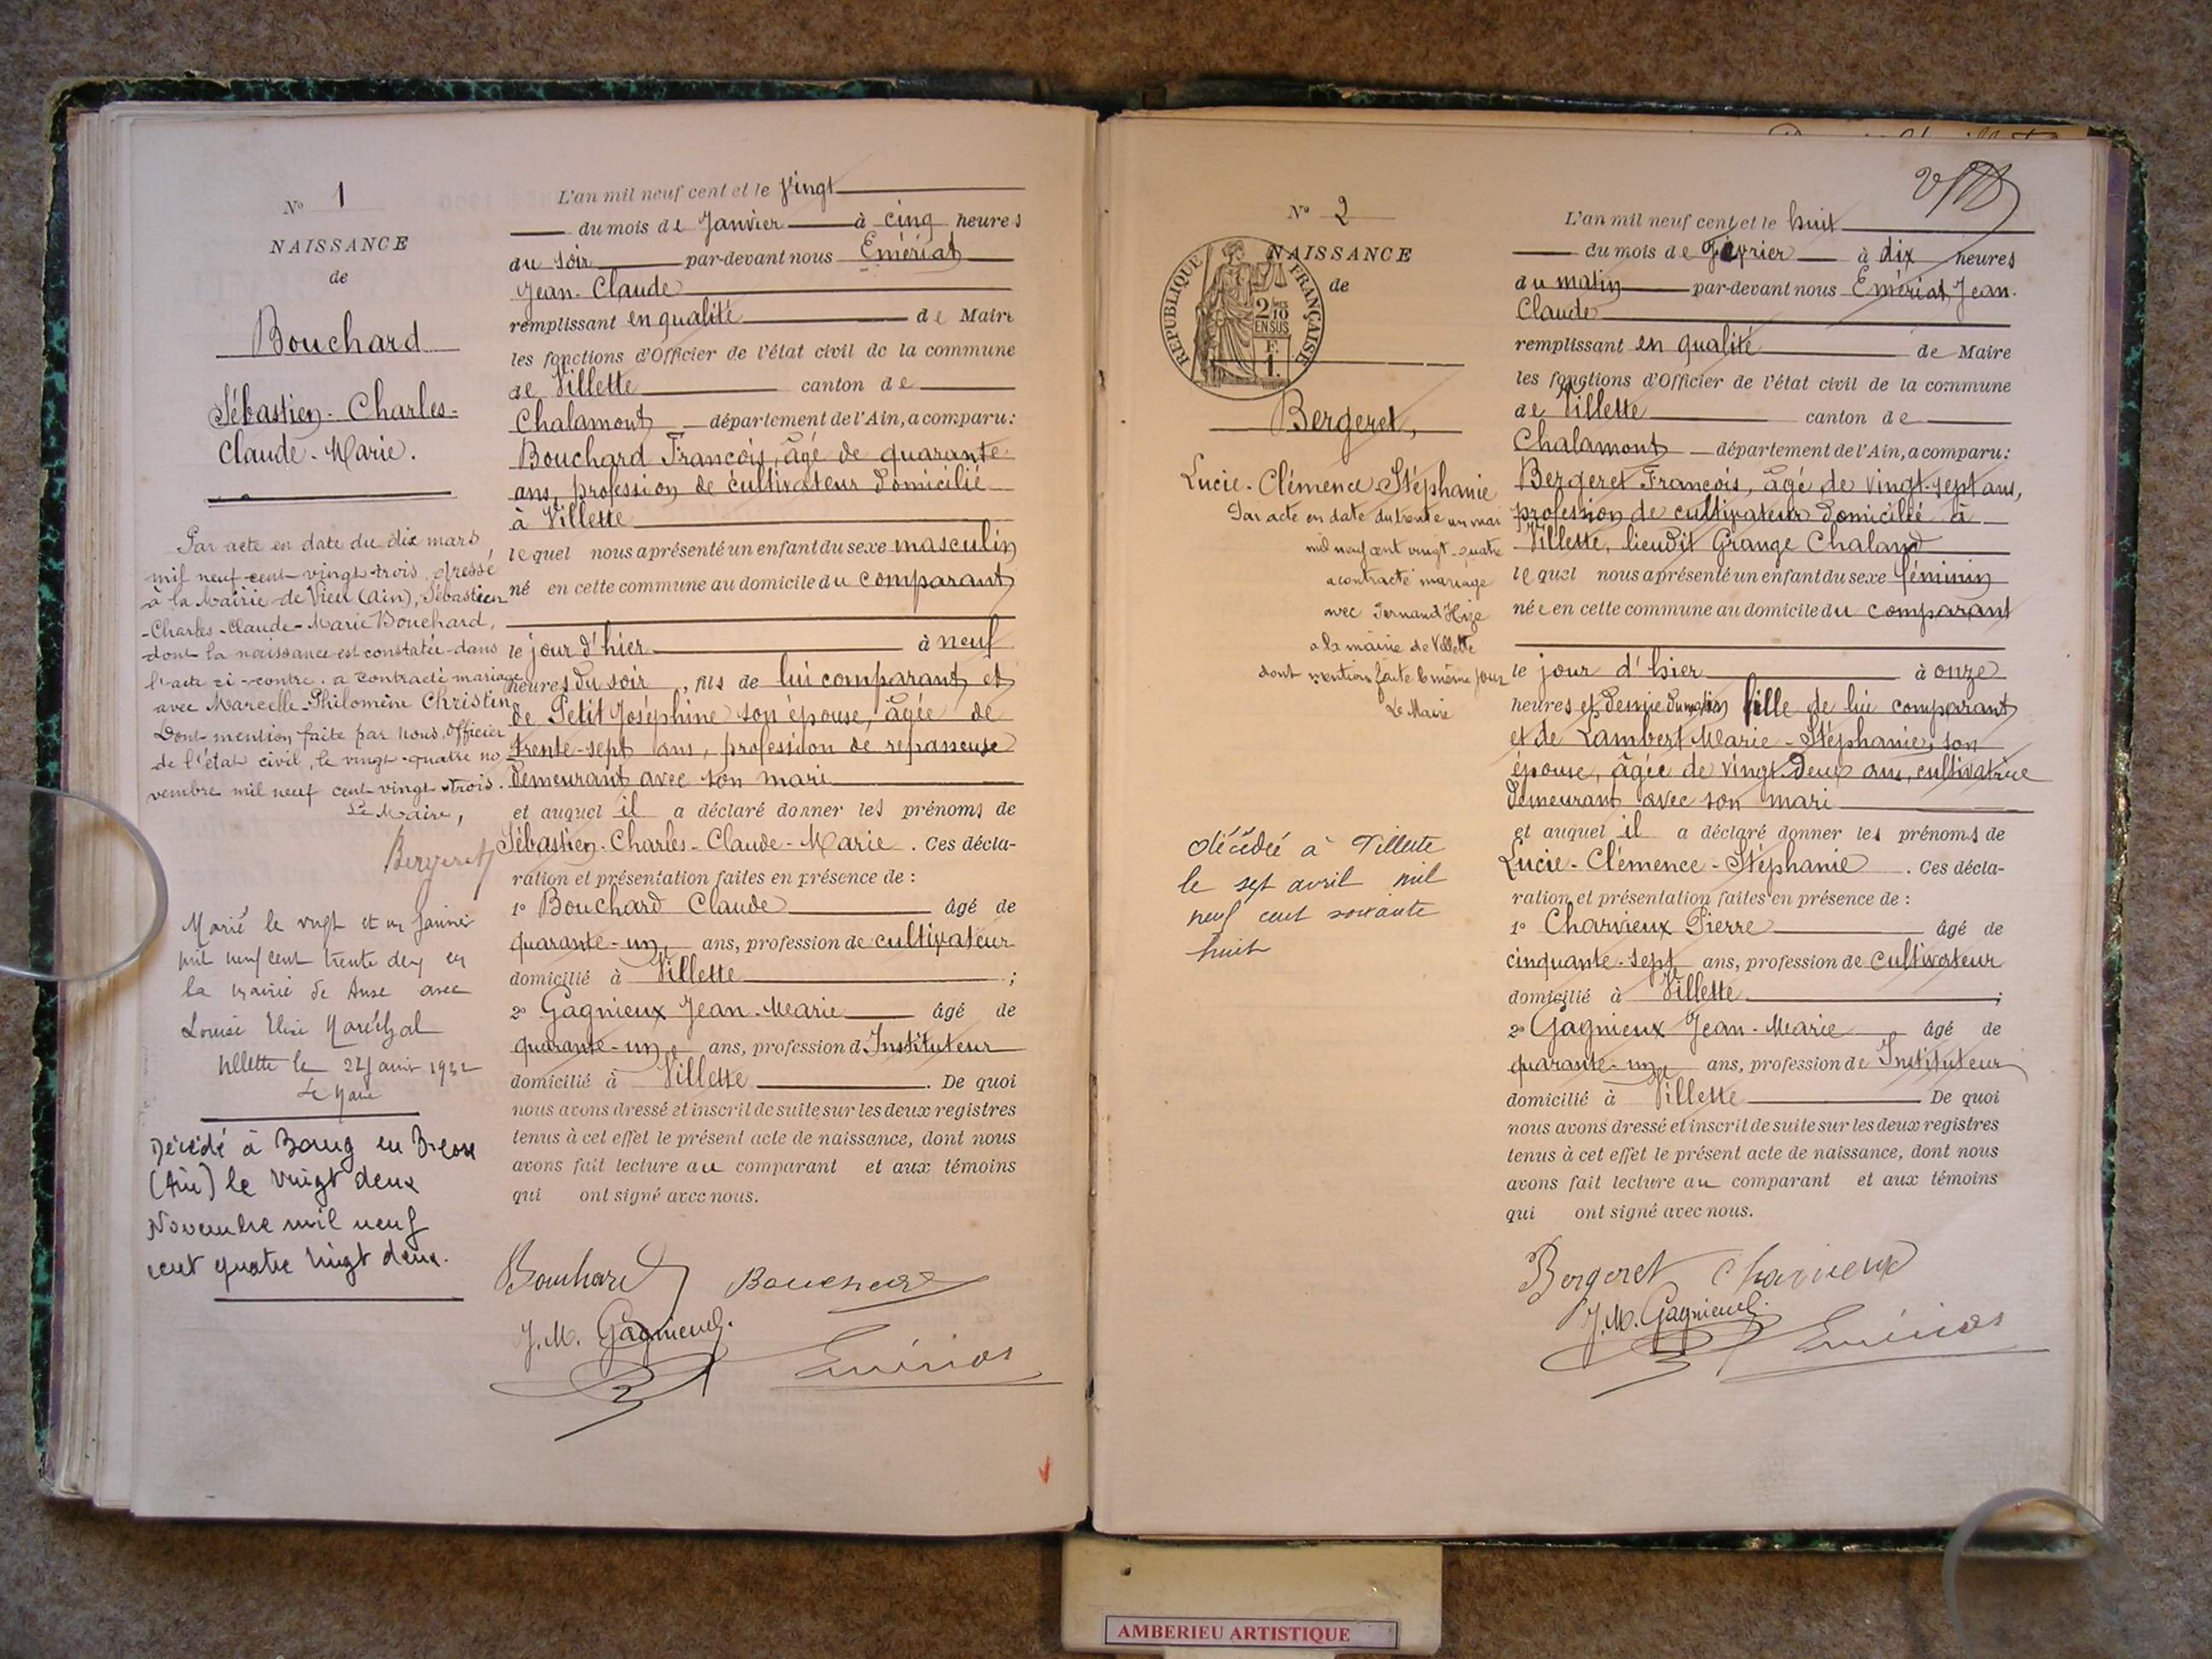 N° 1
NAISSANCE
de
Bouchard
Sébastien-Charles-
Claude-Marie.
Par acte en date du dix mars
mil neuf-cent-vingt-trois, dressé
à la Mairie de Vieu (Ain), Sébastien
-Charles-Claude-Marie Bouchard,
dont la naissance est constatée dans
l'acte ci-contre, a contracté mariage
avec Marcelle-Philomène Christin
Dont mention faite par nous, Officier
de l'état civil, le vingt-quatre no
vembre mil neuf cent vingt-trois.
Le Maire,
Bergeret
Marié le vingt et un Janvier
mil neuf cent trente deux en
la mairie de Anse avec
Louise Elise Maréchal
Villette le 22 Janvier 1932
Le Maire
Décédé à Bourg en Bresse
(Ain) le vingt deux
Novembre mil neuf
cent quatre vingt deux.
L'an mil neuf cent et le vingt
du mois de Janvier à cinq heures
du soir par-devant nous Emériat
Jean-Claude
remplissant en qualité de Maire
les fonctions d'Officier de l'état civil de la commune
de Villette canton de
Chalamont département de l'Ain, a comparu:
Bouchard François, âgé de quarante
ans, profession de cultivateur domicilié
à Villette
lequel nous a présenté un enfant du sexe masculin
né en cette commune au domicile du comparant
le jour d'hier à neuf
heures du soir, fils de lui comparant et
de Petit Joséphine son épouse, âgée de
trente-sept ans, profession de repasseuse
demeurant avec son mari
et auquel il a déclaré donner les prénoms de
Sébastien-Charles-Claude-Marie. Ces décla-
ration et présentation faites en présence de :
1° Bouchard Claude âgé de
quarante-un, ans, profession de cultivateur
domicilié à Villette ;
2° Gagnieux Jean-Marie âgé de
quarante-un, ans, profession d'Instituteur
domicilié à Villette. De quoi
nous avons dressé et inscrit de suite sur les deux registres
tenus à cet effet le présent acte de naissance, dont nous
avons fait lecture au comparant et aux témoins
qui ont signé avec nous.
Bouchard Bouchard
J.M. Gagnieux
Emériat
N° 2
NAISSANCE
de
RÉPUBLIQUE FRANÇAISE
2/10 EN SUS
F. 1.
Bergeret,
Lucie-Clémence Stéphanie
Par acte en date du trente un mai
mil neuf cent vingt-quatre
a contracté mariage
avec Fernand
a la mairie de Villette
dont mention faite le même jour
Le Maire
décédée à Villette
le sept avril mil
neuf cent soixante
huit
L'an mil neuf cent et le huit
du mois de Février à dix heures
du matin par-devant nous Emériat Jean-
Claude
remplissant en qualité de Maire
les fonctions d'Officier de l'état civil de la commune
de Villette canton de
Chalamont département de l'Ain, a comparu:
Bergeret François, âgé de vingt-sept ans,
profession de cultivateur domicilié à
Villette, lieudit Grange Chaland
lequel nous a présenté un enfant du sexe féminin
née en cette commune au domicile du comparant
le jour d'hier à onze
heures et demie du matin fille de lui comparant
et de Lambert Marie-Stéphanie, son
épouse, âgée de vingt-deux ans, cultivatrice
demeurant avec son mari
et auquel il a déclaré donner les prénoms de
Lucie-Clémence-Stéphanie. Ces décla-
ration et présentation faites en présence de :
1° Charvieux Pierre âgé de
cinquante-sept ans, profession de cultivateur
domicilié à Villette ;
2° Gagnieux Jean-Marie âgé de
quarante-un ans, profession de Instituteur
domicilié à Villette De quoi
nous avons dressé et inscrit de suite sur les deux registres
tenus à cet effet le présent acte de naissance, dont nous
avons fait lecture au comparant et aux témoins
qui ont signé avec nous.
Bergeret Charvieux
J.M. Gagnieux
Emériat
AMBERIEU ARTISTIQUE